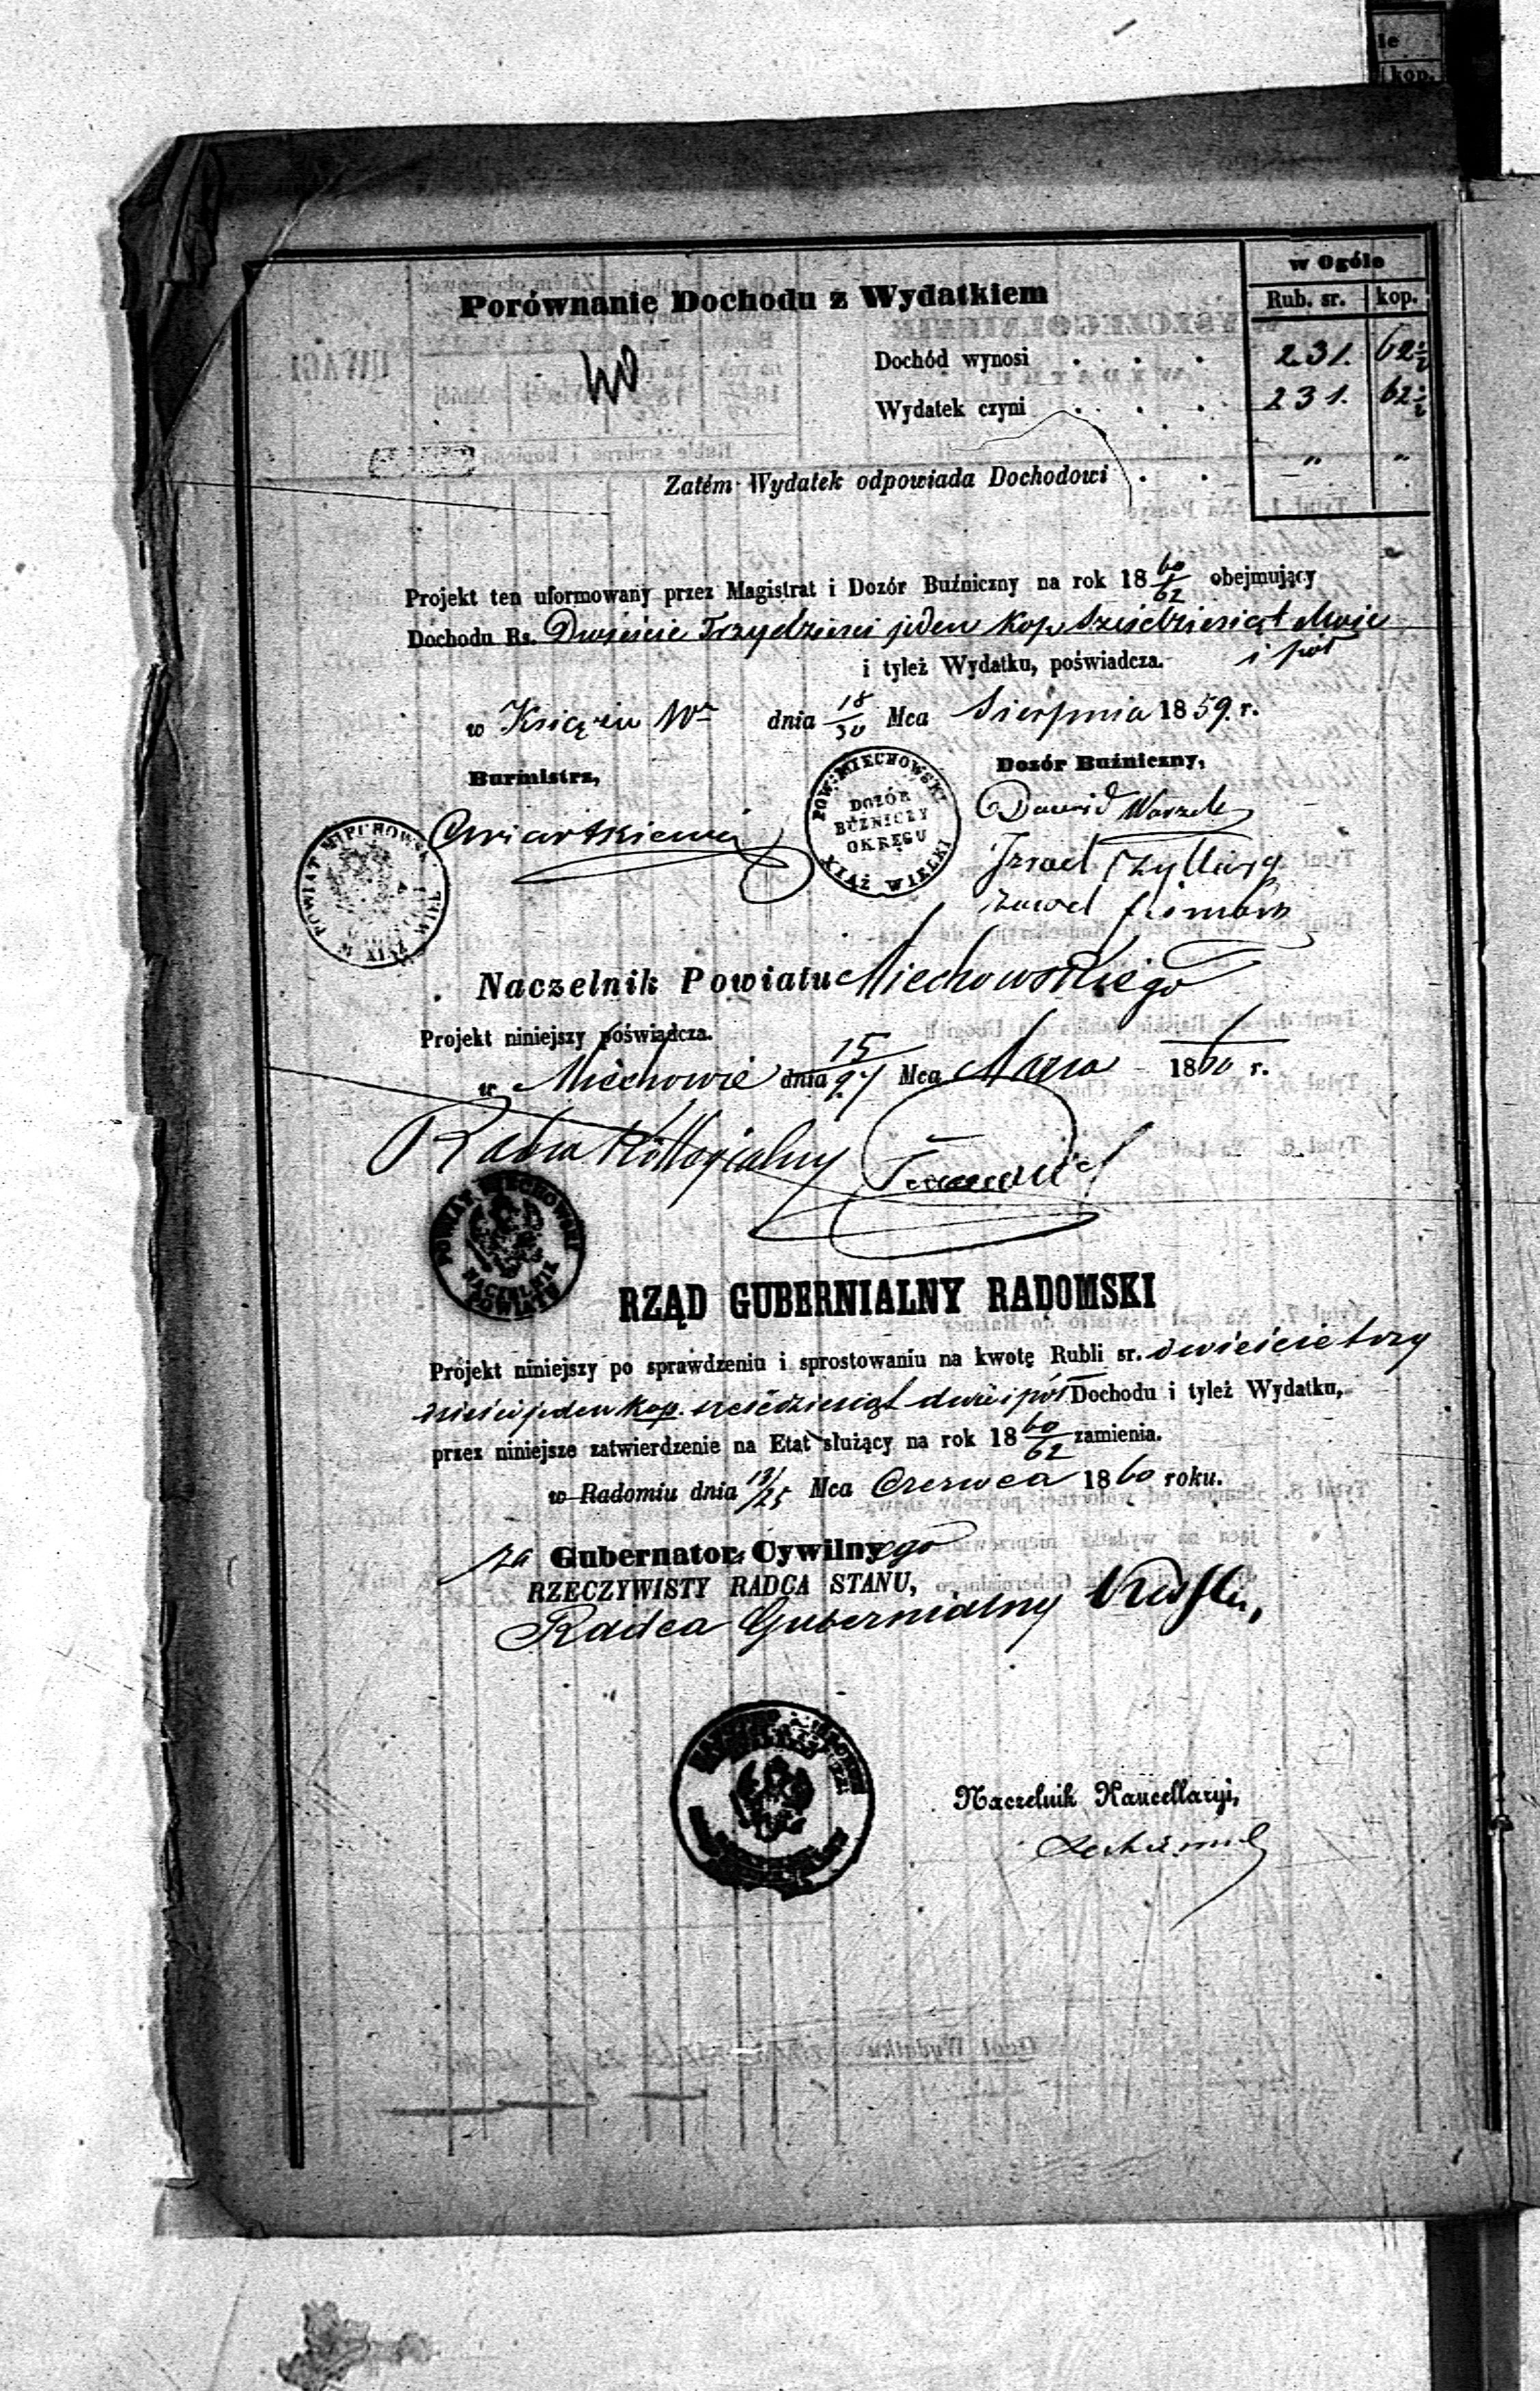 le
kop.
w Ogóle
Porównanie Dochodu z Wydatkiem
Rub. sr. kop.
Dochód wynosi . . . . 231. 62½
Wydatek czyni . . . . 231. 62½
Zatém Wydatek odpowiada Dochodowi . . „ „
Projekt ten uformowany przez Magistrat i Dozór Buźniczny na rok 18 60/62 obejmujący
Dochodu Rs. Dwieście Trzydzieści jeden Kop. Sześdziesiąt dwie
i tyleż Wydatku, poświadcza. i pół
w Księżu Wm dnia 18/30 Mca Sierpnia 1859. r.
Burmistrz,
Dozór Buźniczny,
POW: MIECHOWSKI
DOZÓR
BUŹNICZY
OKRĘGU
XIĄŻ WIELKI
Dawid
Naczelnik Powiatu Miechowskiego
Projekt niniejszy poświadcza.
w Miechowie dnia 15/27 Mca Marca 1860 r.
Radca Kollegialny
POWIAT MIECHOWSKI
NACZELNIK
POWIATU
RZĄD GUBERNIALNY RADOMSKI
Projekt niniejszy po sprawdzeniu i sprostowaniu na kwotę Rubli sr. dwieście trzy
dzieści jeden kop. sześćdziesiąt dwie i pół Dochodu i tyleż Wydatku,
przez niniejsze zatwierdzenie na Etat służący na rok 18 60/62 zamienia.
w Radomiu dnia 13/25 Mca Czerwca 1860 roku.
za Gubernatora Cywilnego
RZECZYWISTY RADCA STANU,
Radca Gubernialny
Naczelnik Kancellaryi,